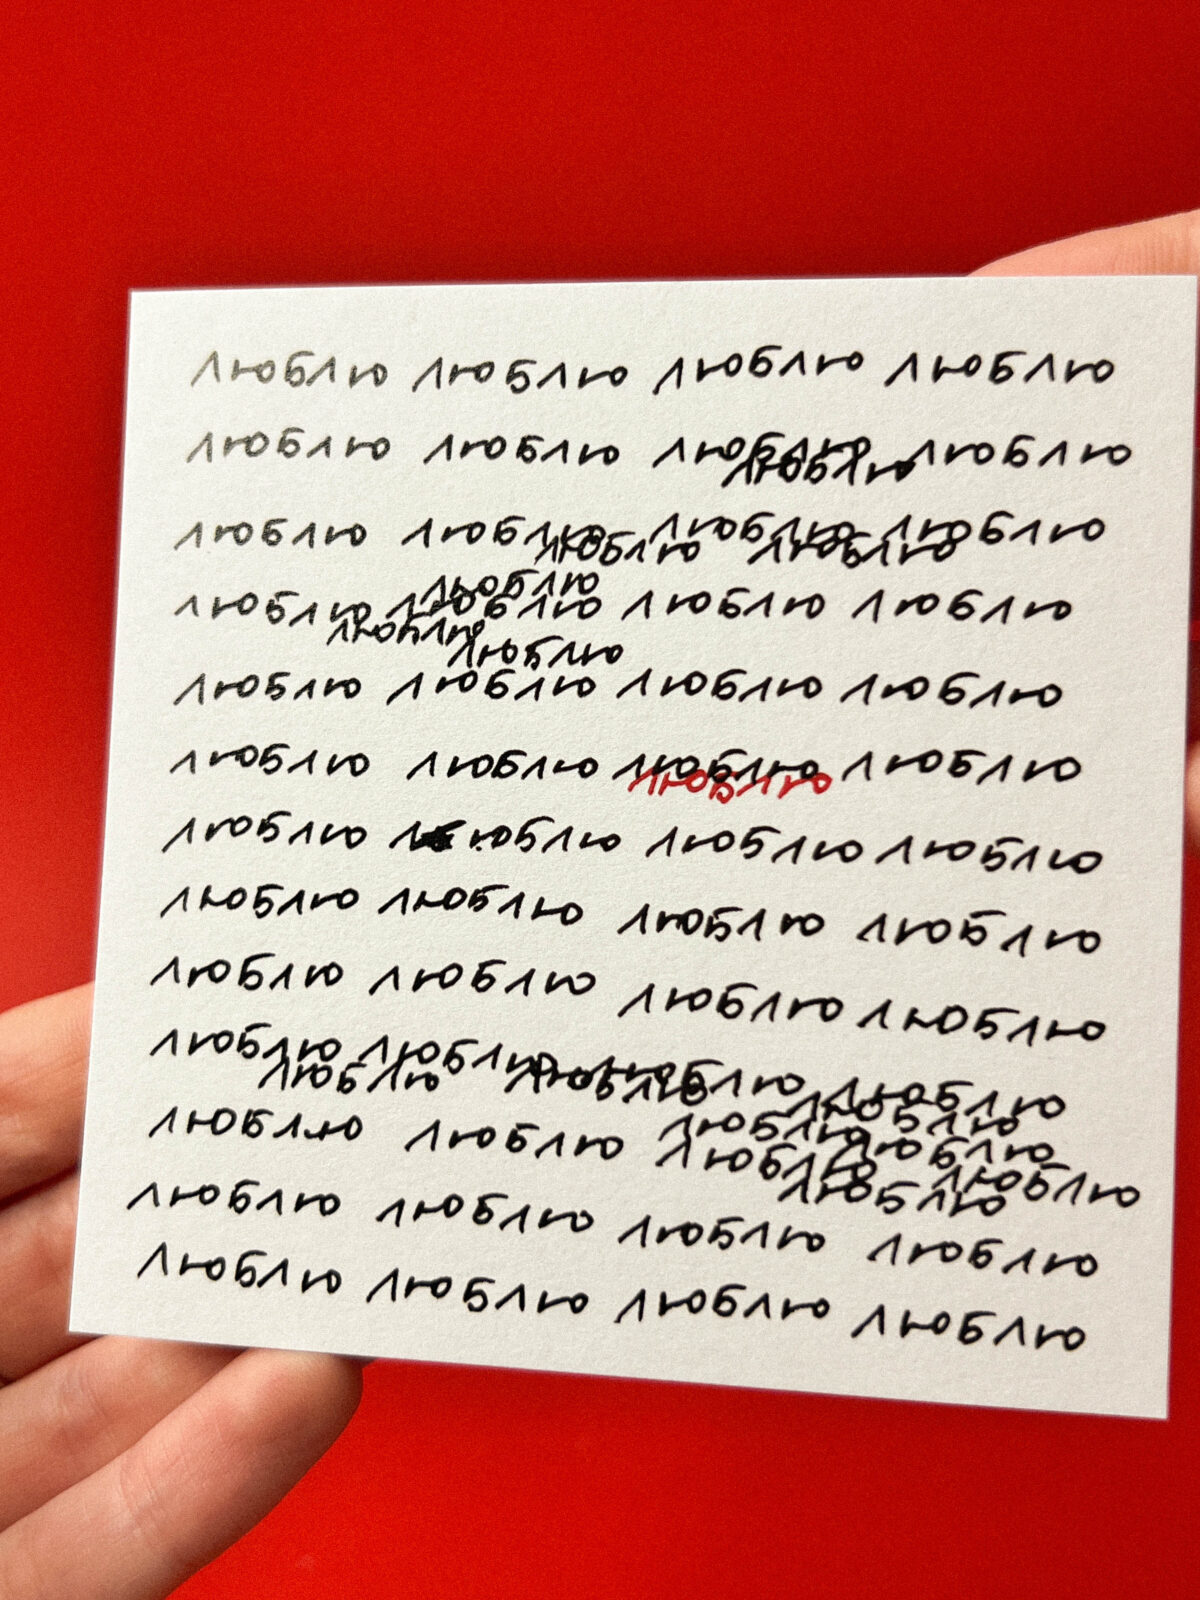 люблю люблю люблю люблю
люблю люблю люблю люблю
люблю
люблю люблю люблю люблю
люблю люблю
люблю
люблю люблю люблю люблю
люблю
люблю
люблю люблю люблю люблю
люблю люблю люблю люблю
люблю
люблю люблю люблю люблю
люблю люблю люблю люблю
люблю люблю люблю люблю
люблю люблю люблю люблю
люблю люблю
люблю
люблю люблю люблю люблю
люблю люблю
люблю
люблю люблю люблю люблю
люблю люблю люблю люблю